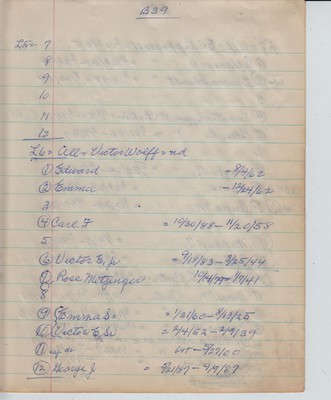 B39
Lts= 7
8
9
10
11
12
L6= All = Victor Wolff = nd
① Edward - 9/2/62
② Emma - 12/24/62
3
④ Carl F = 10/30/88 - 11/20/58
5
⑥ Victor E, Jr = 9/19/83 - 3/25/44
⑦ Rose Metzinger 10/14/77 - 1941
8
⑨ Emma S = = 1/21/60 - 8/13/25
⑩ Victor E, Sr = 2/4/52 - 2/9/39
⑪ inf - 5/27/00
⑫ George J = 8/21/67 - 9/9/67